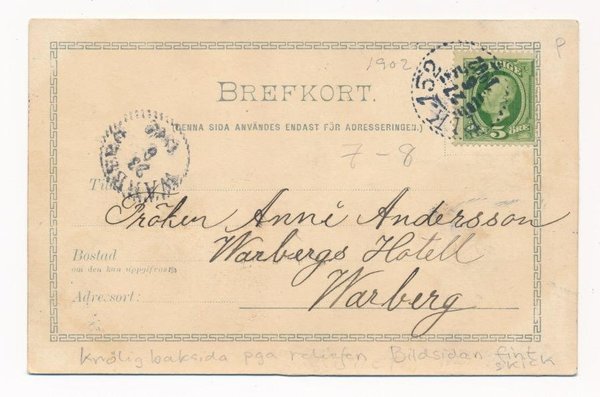 P
1902
BREFKORT.
(DENNA SIDA ANVÄNDES ENDAST FÖR ADRESSERINGEN.)
5 ÖRE
PKXP 
WARBERG
23
7-8
Fröken Anni Andersson
Bostad
om den kan uppgifvas:
Warbergs Hotell
Adressort:
Warberg
Knölig baksida pga reliefen. Bildsidan fint
skick